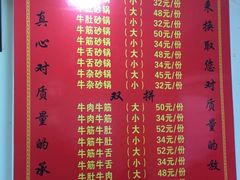 牛肚砂锅（小）32元/份
牛肚砂锅（大）48元/份
牛筋砂锅（小）34元/份
牛筋砂锅（大）50元/份
牛舌砂锅（小）34元/份
牛舌砂锅（大）48元/份
牛杂砂锅（小）32元/份
牛杂砂锅（大）45元/份
双拼
牛肉牛筋（大）50元/份
牛肉牛筋（小）34元/份
牛筋牛肚（大）52元/份
牛筋牛肚（小）34元/份
牛筋牛舌（大）52元/份
牛筋牛舌（小）34元/份
牛肚牛肉（大）48元/份
真心对质量的承
来换取您对质量的放